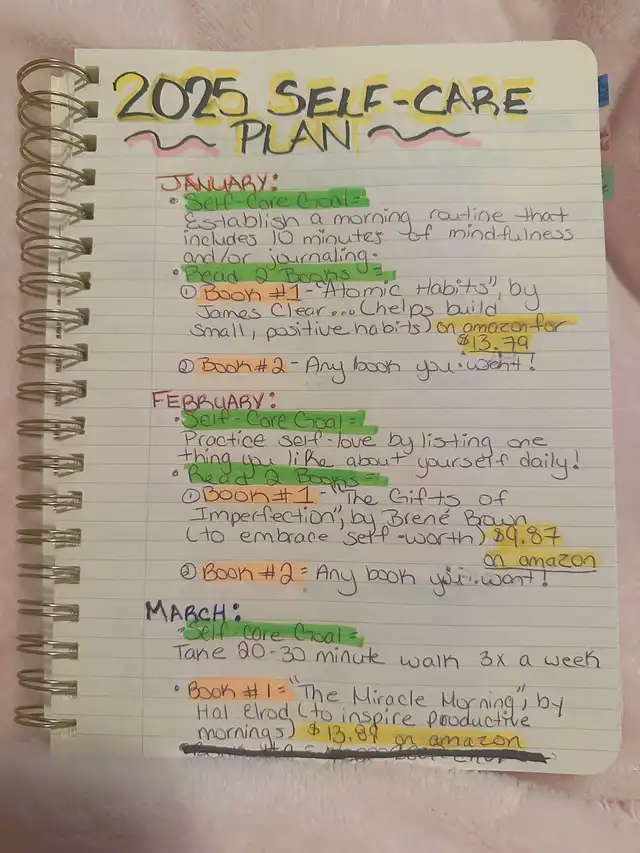 2025 SELF-CARE
PLAN
JANUARY:
• Self-Care Goal=
Establish a morning routine that
includes 10 minutes of mindfulness
and/or journaling.
• Read 2 Books =
① Book #1 - "Atomic Habits", by
James Clear... (helps build
small, positive habits) on amazon for
$13.79
② Book #2 - Any book you want!
FEBRUARY:
• Self-Care Goal=
Practice self-love by listing one
thing you like about yourself daily!
• Read 2 Books=
① Book #1 - "The Gifts of
Imperfection", by Brené Brown
(to embrace self-worth) $9.87
on amazon
② Book #2 = Any book you want!
MARCH:
• Self-care Goal=
Take 20-30 minute walk 3x a week
• Book #1 = "The Miracle Morning", by
Hal Elrod (to inspire productive
mornings) $13.89 on amazon